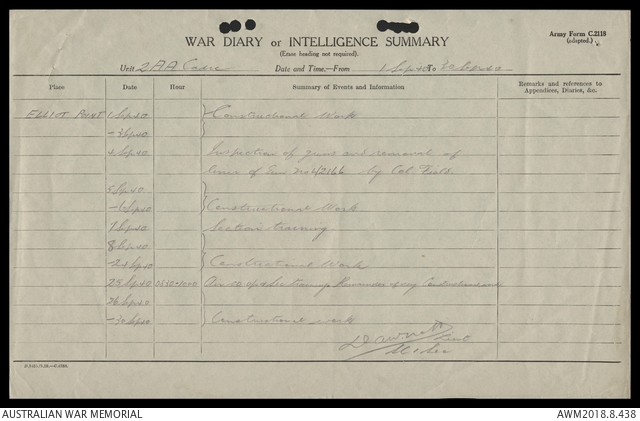 WAR DIARY or INTELLIGENCE SUMMARY
(Erase heading not required).
Army Form C.2118
(adapted.)
Unit 2 AA Date and Time.—From 1 Sep 40 To 30 Sep 40
Place Date Hour Summary of Events and Information Remarks and references to Appendices, Diaries, &c.
ELLIOT POINT 1 Sep 40 Constructional Work
4 Sep 40 Inspection of guns and removal of
liner of Gun No 42166 by Col. Fields.
5 Sep 40
Constructional Work
7 Sep 40 Section training
8 Sep 40
24 Sep 40 Constructional Work
25 Sep 40
26 Sep 40
30 Sep 40 Constructional work
Lieut
AUSTRALIAN WAR MEMORIAL AWM2018.8.438